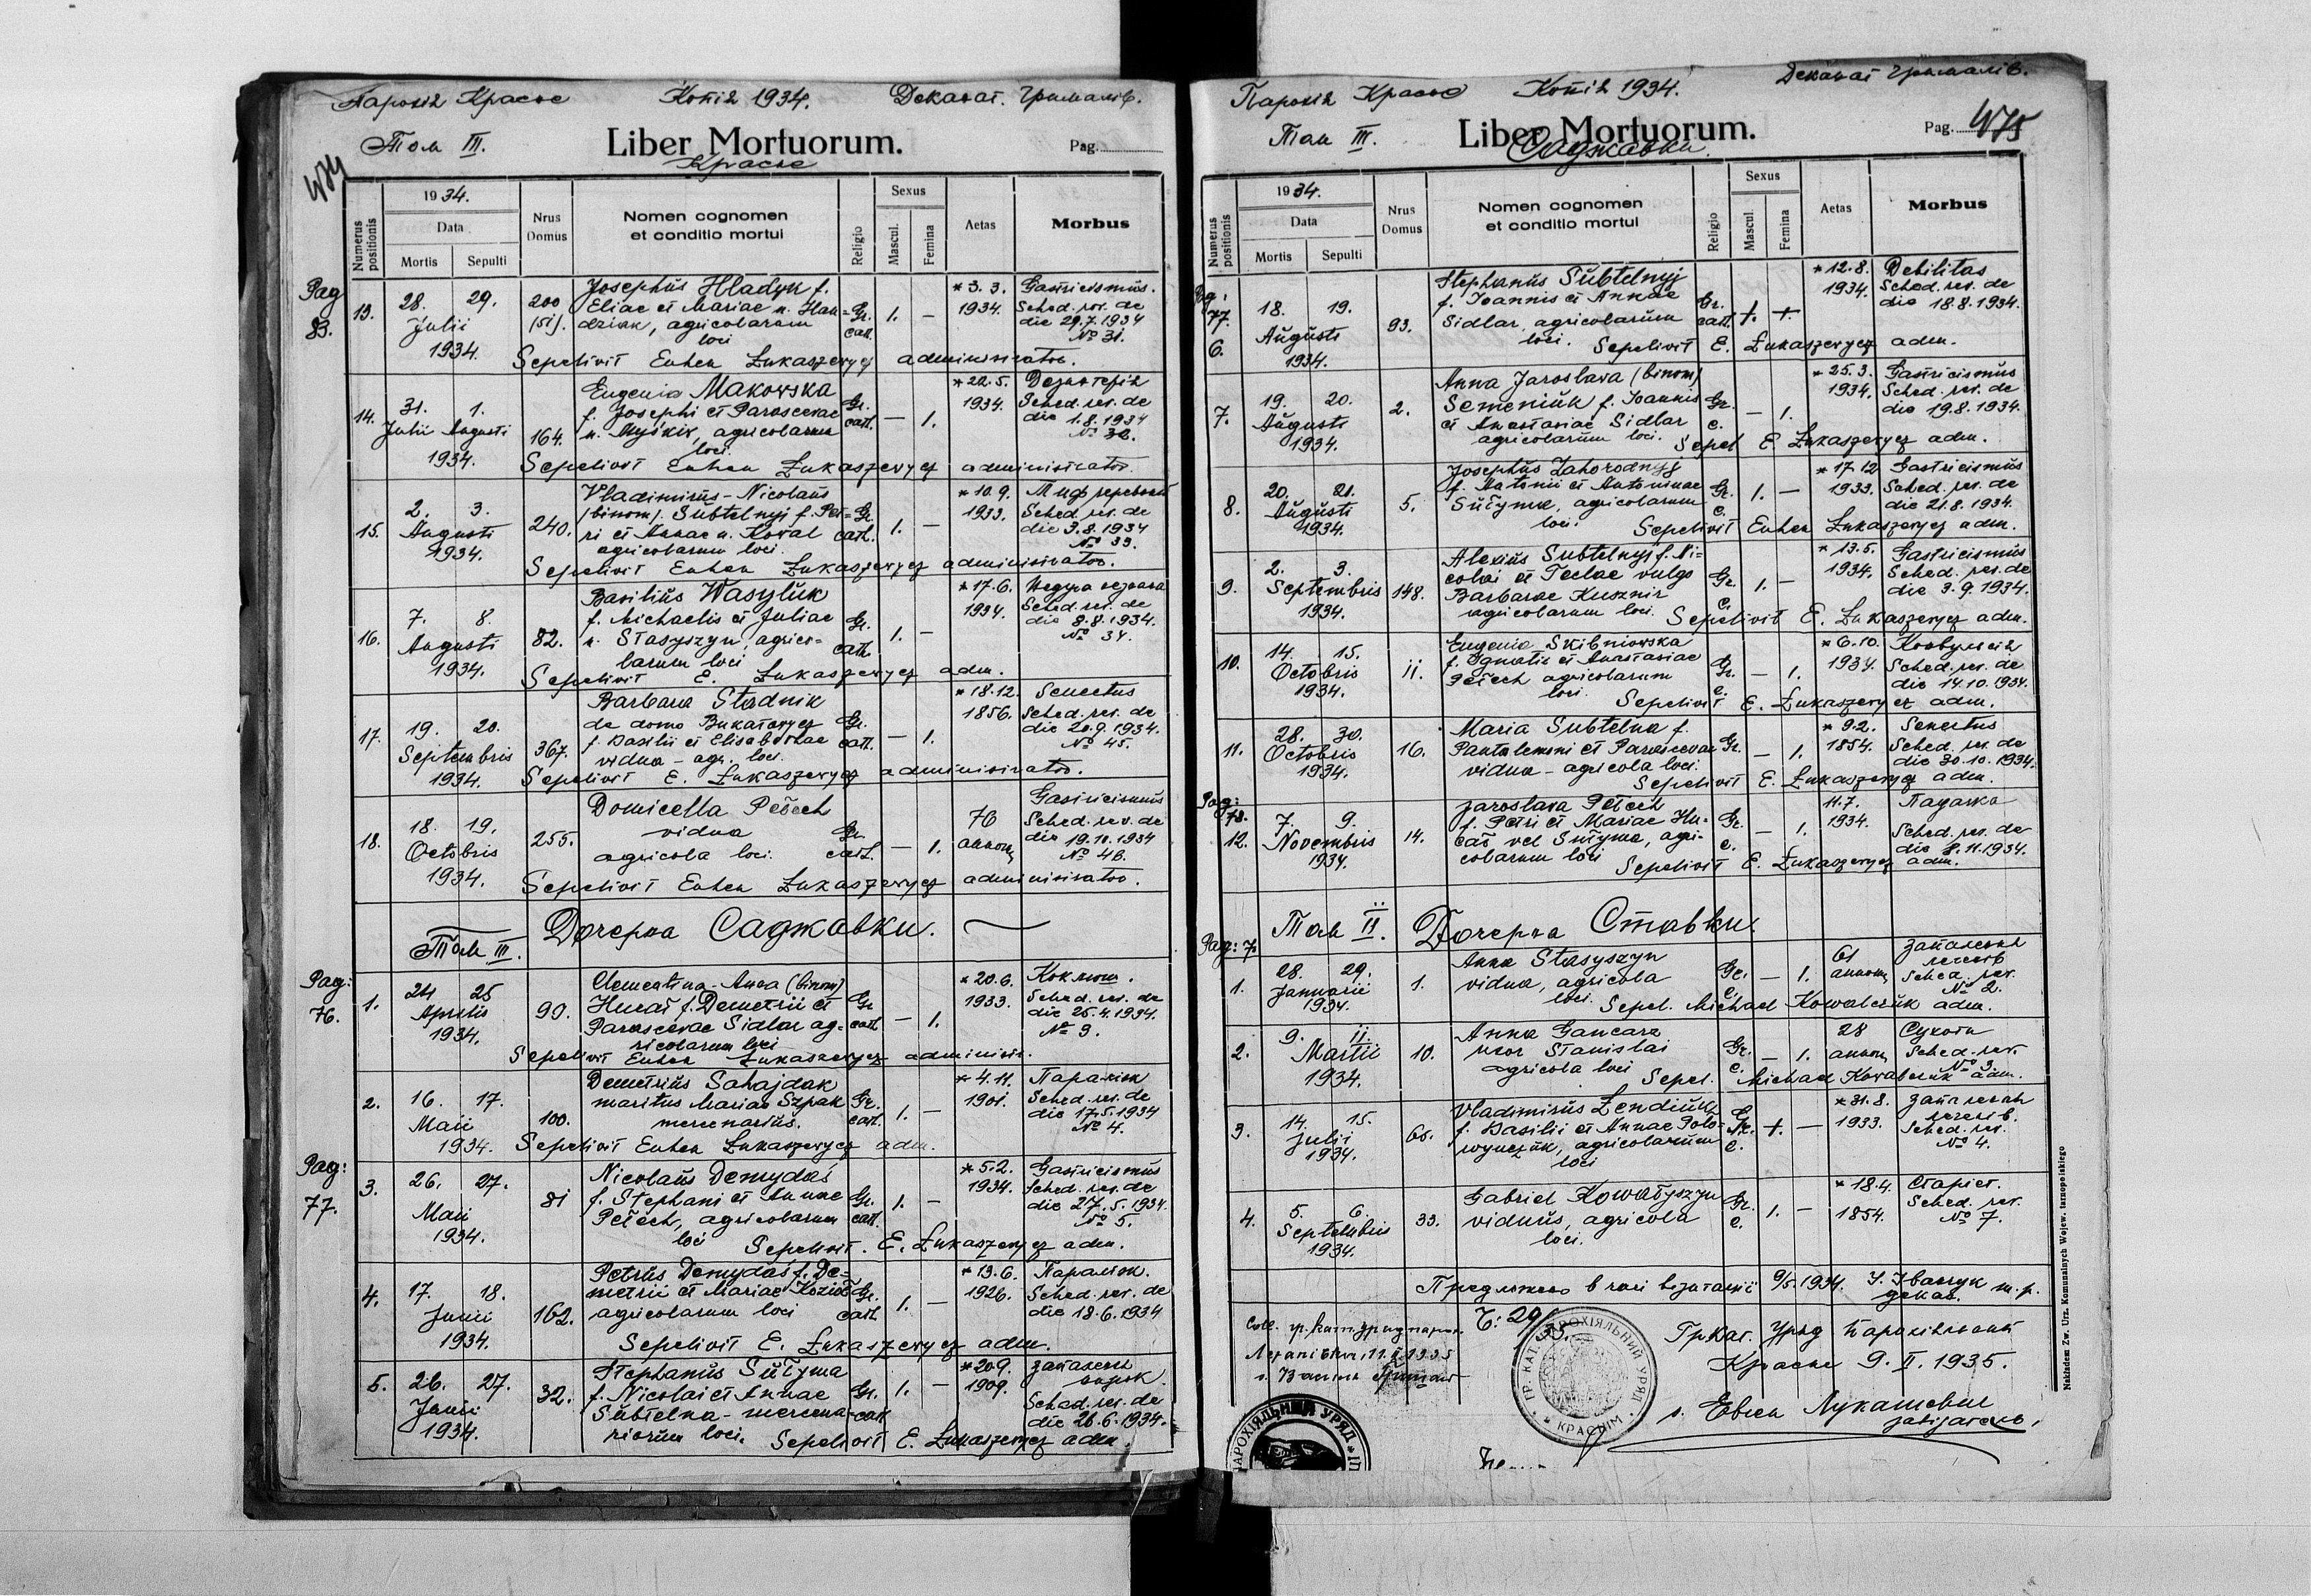 Парохія Красне Копія 1934. Деканат. Грималів.
Том III. Liber Mortuorum. Pag.
Красне
474
1934.
Data
Mortis Sepulti
Numerus positionis
Nrus Domus
Nomen cognomen et conditio mortui
Religio
Sexus
Mascul. Femina
Aetas
Morbus
Pag 83.
13. 28. 29. Julii 1934. 200 (51). Josephus Hladyn f. Gr. cath. 1. — *3. 3. 1934. Gastricismus.
Eliae et Mariae n. Hlan= Sched. rev. de
dziuk, agricolarum die 29.7.1934
loci № 31.
Sepelivit Euhen Łukaszewycz administrator.
14. 31. 1. Julii Augusti 1934. 164. Eugenia Makowska Gr. cath. — 1. *22.5. 1934. Дезинтерія
f. Josephi et Parascevae Sched. rev. de
n. Myśkiv, agricolarum die 1.8.1934
loci. № 32.
Sepelivit Euhen Łukaszewycz administrator.
15. 2. 3. Augusti 1934. 240. Vladimirus - Nicolaus Gr. cath. 1. — *10.9. 1933.
(binom). Subtelnyj f. Pet= Sched. rev. de
ri et Annae n. Kowal die 3.8.1934
agricolarum loci. № 33.
Sepelivit Euhen Łukaszewycz administrator.
16. 7. 8. Augusti 1934. 82. Basilius Wasyluk Gr. cath. 1. — *17.6. 1934.
f. Michaelis et Juliae Sched. rev. de
n. Stasyszyn, agrico= die 8.8.1934.
larum loci № 34.
Sepelivit E. Łukaszewycz adm.
17. 19. 20. Septembris 1934. 367. Barbara Stadnik Gr. cath. — 1. *18.12. 1856. Senectus
de domo Bukatewycz Sched. rev. de
f. Basilii et Elisabethae die 20.9.1934.
vidua - agr. loci. № 45.
Sepelivit E. Łukaszewycz administrator.
18. 18. 19. Octobris 1934. 255. Domicella Petech Gr. cath. — 1. 76 annorum Gastricismus
vidua Sched. rev. de
agricola loci. die 19.10.1934
№ 46.
Sepelivit Euhen Łukaszewycz administrator.
Том III. Дочерна Саджавки.
Pag: 76.
1. 24 25 Aprilis 1934. 90. Clementina-Anna (binom) Gr. cath. — 1. *20.6. 1933. Коклюш.
Hucał f. Demetrii et Sched. rev. de
Parascevae Sidlar ag= die 25.4.1934.
ricolarum loci № 3.
Sepelivit Euhen Łukaszewycz administr.
2. 16. 17. Maii 1934. 100. Demetrius Sahajdak Gr. cath. 1. — *4.11. 1901. Параліж
maritus Mariae Szpak Sched. rev. de
mercenarius. die 17.5.1934
№ 4.
Sepelivit Euhen Łukaszewycz adm.
Pag: 77.
3. 26. 27. Maii 1934. 81 Nicolaus Demydaś Gr. cath. 1. — *5.2. 1934. Gastricismus
f. Stephani et Annae Sched. rev. de
Petech, agricolarum die 27.5.1934.
loci № 5.
Sepelivit. E. Łukaszewycz adm.
4. 17. 18. Junii 1934. 162. Petrus Demydaś f. De= Gr. cath. 1. — *13.6. 1926. Параліж.
metrii et Mariae Kozioł Sched. rev. de
agricolarum loci die 18.6.1934
Sepelivit E. Łukaszewycz adm.
5. 26. 27. Junii 1934. 32. Stephanus Sutyma Gr. cath 1. — *20.9. 1909. запалення
f. Nicolai et Annae
Subtelna - mercena- Sched. rev. de
riorum loci. die 26.6.1934.
Sepelivit E. Łukaszewycz adm.
Парохія Красне Копія 1934. Деканат Грималів.
Том III. Liber Mortuorum. Pag. 475
Саджавки.
1934.
Data
Mortis Sepulti
Numerus positionis
Nrus Domus
Nomen cognomen et conditio mortui
Religio
Sexus
Mascul. Femina
Aetas
Morbus
Pag: 77.
6. 18. 19. Augusti 1934. 93. Stephanus Subtelnyj Gr. cath. 1. 1. *12.8. 1934. Debilitas
f. Joannis et Annae Sched. rev. de
Sidlar, agricolarum die 18.8.1934.
loci. Sepelivit E. Łukaszewycz adm.
7. 19. 20. Augusti 1934. 2. Anna Jaroslava (binom) Gr. c. — 1. *25.3. 1934. Gastricismus
Semeniuk f. Joannis Sched. rev. de
et Anastasiae Sidlar die 19.8.1934.
agricolarum loci. Sepel E. Łukaszewycz adm.
8. 20. 21. Augusti 1934. 5. Josephus Zahorodnyj Gr. c. 1. — *17.12 1933. Gastricismus
f. Antonii et Antoninae Sched. rev. de
Sutyma, agricolarum die 21.8.1934.
loci. Sepelivit Euhen Łukaszewycz adm.
9. 2. 3. Septembris 1934. 148. Alexius Subtelnyj f. Ni= Gr. c. 1. — *13.5. 1934. Gastricismus
colai et Teclae vulgo Sched. rev. de
Barbarae Kusznir die 3.9.1934.
agricolarum loci. Sepelivit E. Łukaszewycz adm.
10. 14. 15. Octobris 1934. 11. Eugenia Skibniowska Gr. c. — 1. *6.10. 1934. Конвульсія
f. Ignatii et Anastasiae Sched. rev. de
Petech agricolarum die 14.10.1934.
loci. Sepelivit E. Łukaszewycz adm.
11. 28. 30. Octobris 1934. 16. Maria Subtelna f. Gr. — 1. *9.2. 1854. Senectus
Pantalemoni et Parascevae Sched. rev. de
vidua - agricola loci. die 30.10.1934.
Sepelivit E. Łukaszewycz adm.
Pag: 78.
12. 7. 9. Novembris 1934. 14. Jaroslava Petech Gr. c. — 1. 11.7. 1934. Падачка
f. Petri et Mariae Hu- Sched. rev. de
cał vel Sutyma, agri- die 8.11.1934.
colarum loci Sepelivit E. Łukaszewycz adm.
Том II. Дочерна Ставки.
Pag: 7.
1. 28. 29. Januarii 1934. 1. Anna Stasyszyn Gr. c. — 1. 61 annorum запалення легенів
vidua, agricola Sched. rev.
loci. № 2.
Sepel. Michael Kowalczuk adm.
2. 9. 11. Martii 1934. 10. Anna Gancarz Gr. c. — 1. 28 annorum Сухоти
uxor Stanislai Sched. rev.
agricola loci № 3.
Sepel. Michael Kowalczuk adm.
3. 14. 15. Julii 1934. 65. Vladimirus Zendiuk Gr. c. 1. — *31.8. 1933. запалення легенів.
f. Basilii et Annae Polo- Sched. rev.
wynczuk, agricolarum № 4.
loci
4. 5. 6. Septembris 1934. 33. Gabriel Kowałyszyn Gr. c. 1. — *18.4. 1854. Старість.
viduus, agricola Sched. rev.
loci. № 7.
Предложено в часі візитації 9/5.1934. І. Іванчук m. p.
декан.
Ч: 29/35. Гр.кат. Уряд Парохіяльний
Красне 9. II. 1935.
о. Евген Лукашевич
завідатель.
ПАРОХІЯЛЬНИЙ УРЯД
КРАСНІМ
ПАРОХІЯЛЬНИЙ УРЯД
Nakładem Zw. Urz. Komunalnych Wojew. tarnopolskiego